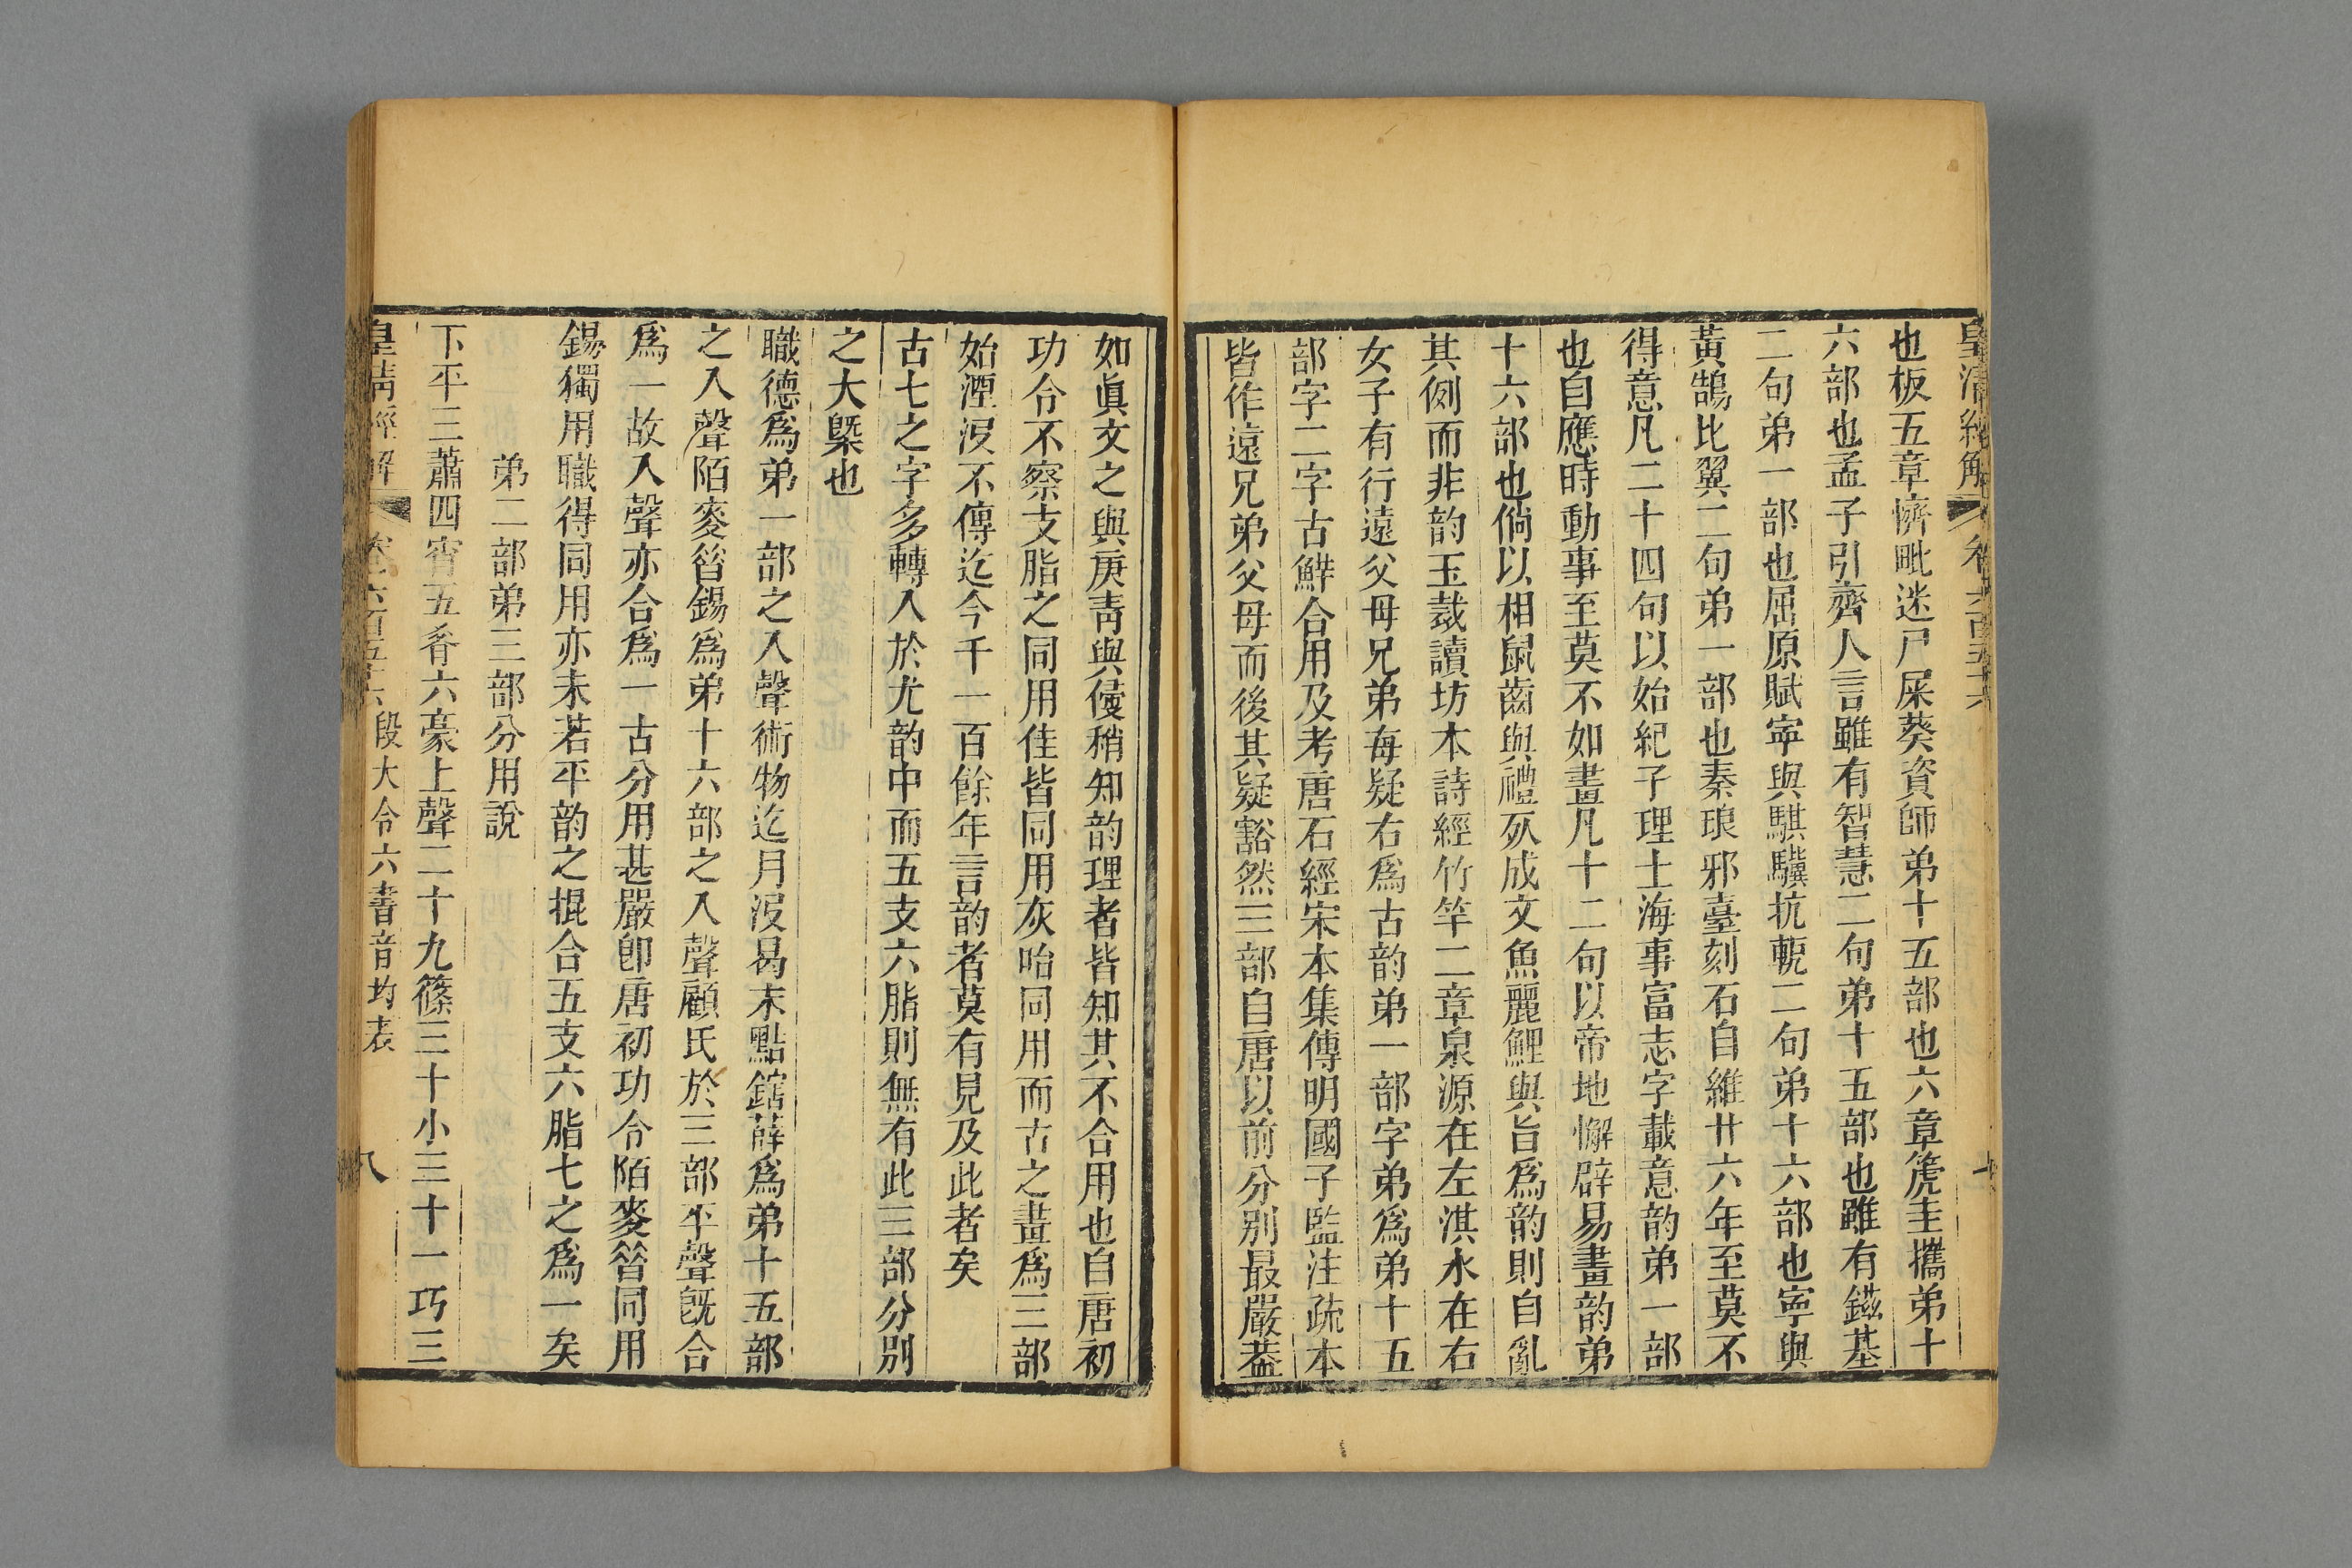 皇清經解 卷六百五十六
也板五章懠毗迷尸屎葵資師弟十五部也六章篪圭攜弟十
六部也孟子引齊人言雖有智慧二句弟十五部也雖有鎡基
二句弟一部也屈原賦寧與騏驥抗軛二句弟十六部也寧與
黃鵠比翼二句弟一部也秦琅邪臺刻石自維廿六年至莫不
得意凡二十四句以始紀子理士海事富志字載意韵弟一部
也自應時動事至莫不如畫凡十二句以帝地懈辟易畫韵弟
十六部也倘以相鼠齒與禮死成文魚麗鯉與旨爲韵則自亂
其例而非韵玉裁讀坊本詩經竹竿二章泉源在左淇水在右
女子有行遠父母兄弟每疑右爲古韵弟一部字弟爲弟十五
部字二字古鮮合用及考唐石經宋本集傳明國子監注疏本
皆作遠兄弟父母而後其疑豁然三部自唐以前分別最嚴葢
如眞文之與庚靑與侵稍知韵理者皆知其不合用也自唐初
功令不察支脂之同用佳皆同用灰咍同用而古之畫爲三部
始湮沒不傳迄今千一百餘年言韵者莫有見及此者矣
古七之字多轉入於尤韵中而五支六脂則無有此三部分別
之大槩也
職德爲弟一部之入聲術物迄月沒曷末黠鎋薛爲弟十五部
之入聲陌麥昔錫爲弟十六部之入聲顧氏於三部平聲旣合
爲一故入聲亦合爲一古分用甚嚴卽唐初功令陌麥昔同用
錫獨用職得同用亦未若平韵之掍合五支六脂七之爲一矣
弟二部弟三部分用說
下平三蕭四宵五肴六豪上聲二十九篠三十小三十一巧三
皇淸經解 卷六百五十六 段大令六書音均表 八